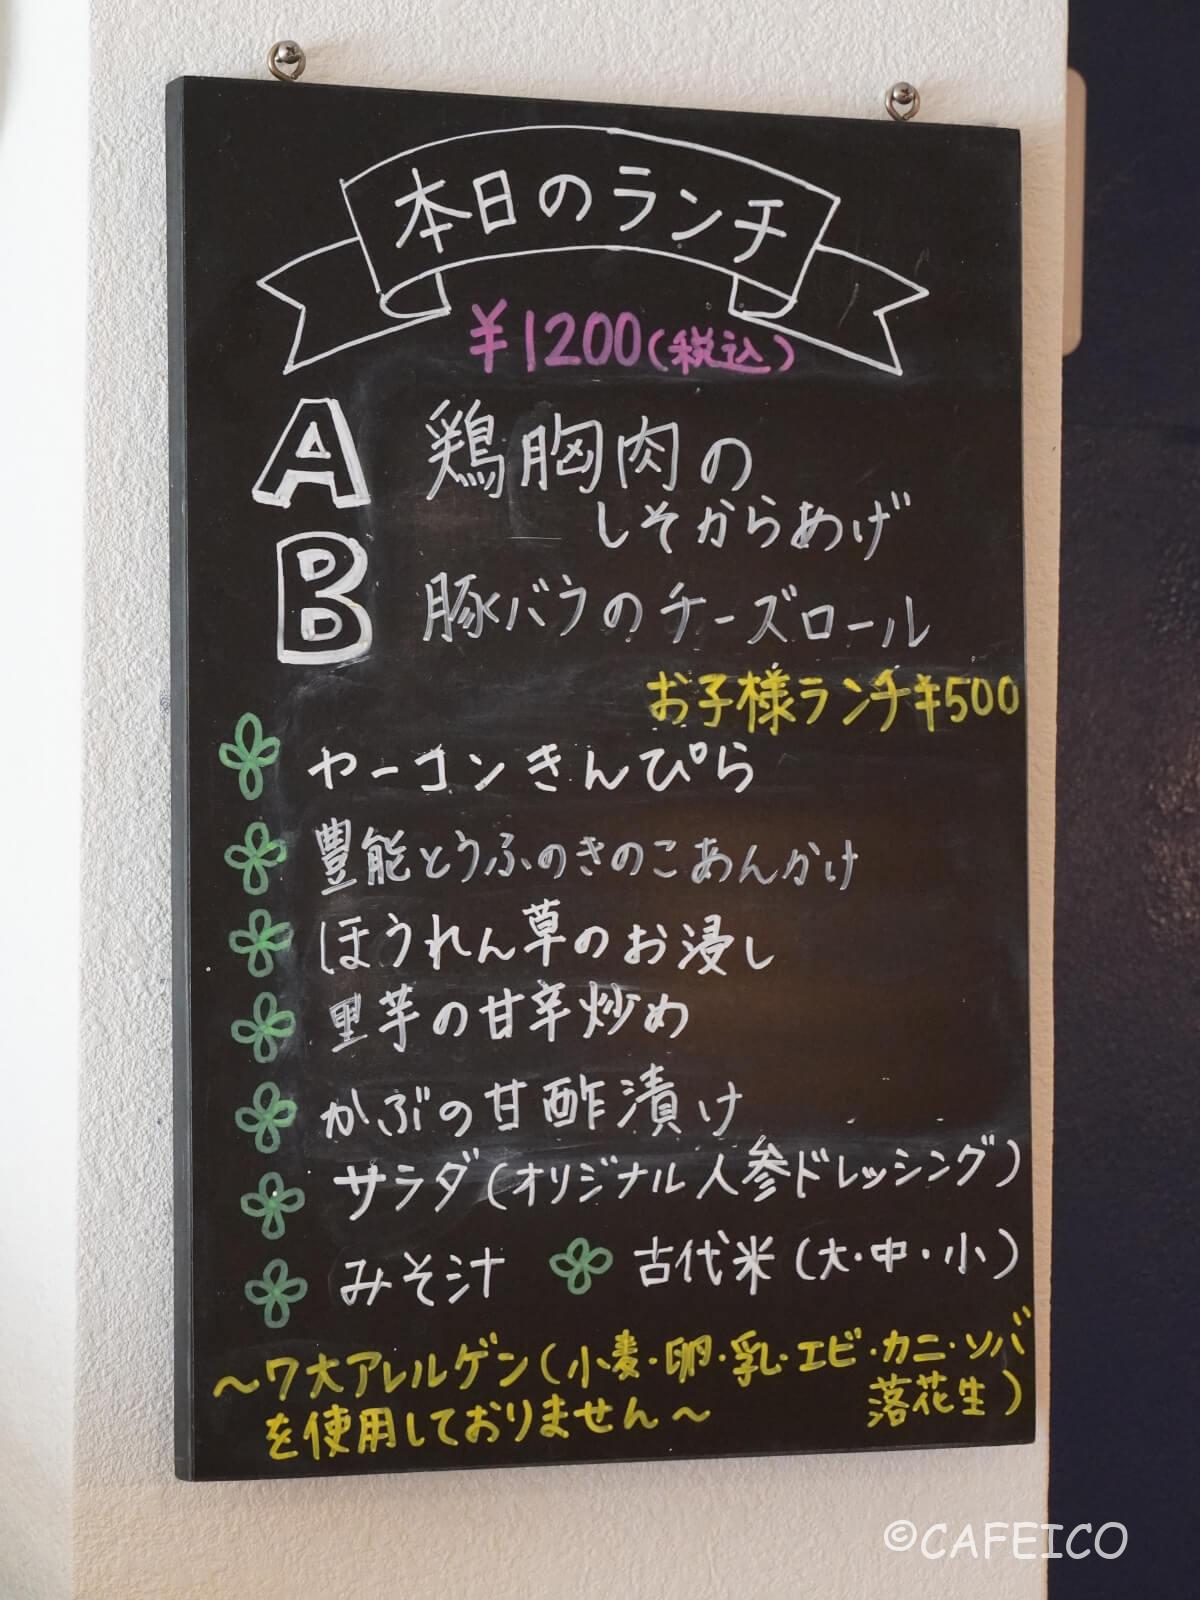 本日のランチ
¥1200(税込)
A 鶏胸肉の
しそからあげ
B 豚バラのチーズロール
お子様ランチ¥500
ヤーコンきんぴら
豊能とうふのきのこあんかけ
ほうれん草のお浸し
里芋の甘辛炒め
かぶの甘酢漬け
サラダ(オリジナル人参ドレッシング)
みそ汁 古代米(大・中・小)
～7大アレルゲン(小麦・卵・乳・エビ・カニ・ソバ
落花生)
を使用しておりません～
©CAFEICO